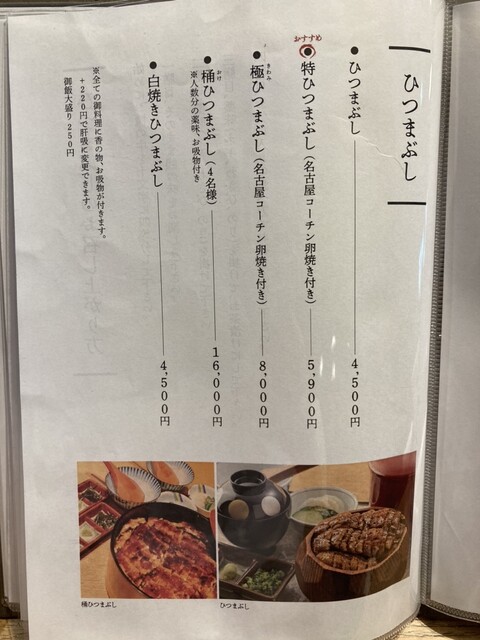 ひつまぶし
●ひつまぶし 4,500円
おすすめ
特ひつまぶし（名古屋コーチン卵焼き付き） 5,900円
きわみ
●極ひつまぶし（名古屋コーチン卵焼き付き） 8,000円
おけ
●桶ひつまぶし（4名様） 16,000円
※人数分の薬味、お吸物付き
●白焼きひつまぶし 4,500円
※全ての御料理に香の物、お吸物が付きます。
+220円で肝吸に変更できます。
御飯大盛り250円
桶ひつまぶし
ひつまぶし